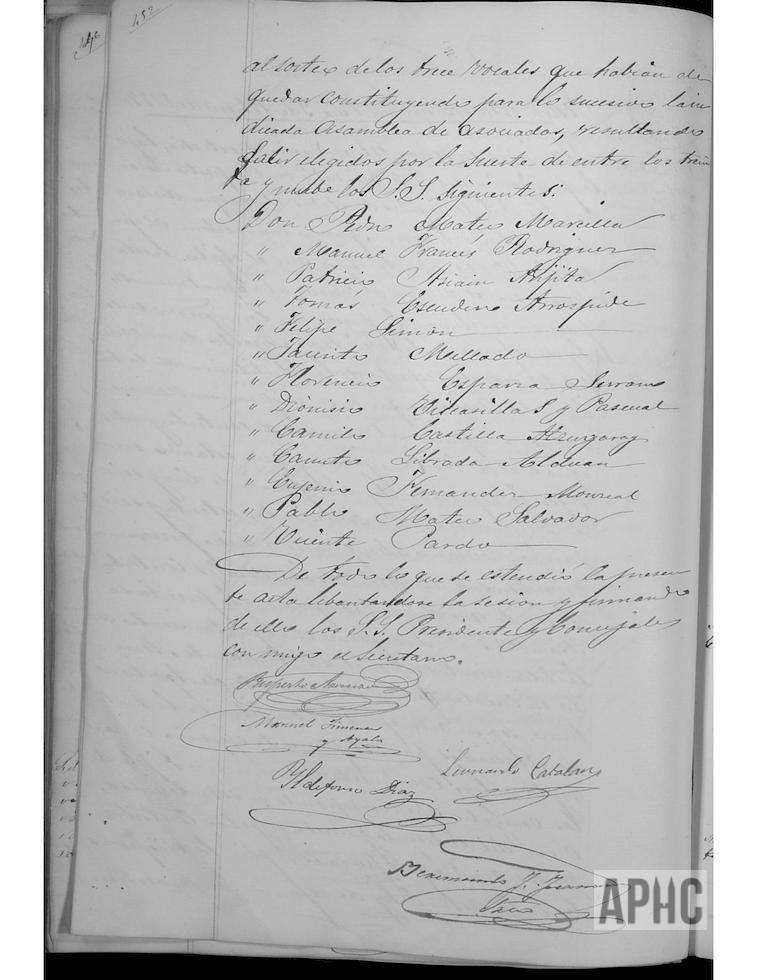 452
al sorteo de los trece vocales que habian de
quedar constituyendo para lo sucesivo la in
dicada asamblea de asociados, resultando
salir elegidos por la suerte de entre los trein
ta y nuebe los S.S. siguientes.
Don Pedro Mateo Marcilla
" Manuel Francés Rodriguez
" Patricio Asiain Arjita
" Tomás Escudero Arrospide
" Felipe Simon
" Jacinto Mellado
" Florencio Esparza Serrano
" Dionisio Vicasillas y Pascual
" Camilo Castilla
" Canuto Librada Alduan
" Eugenio Fernandez Monreal
" Pablo Mateo Salvador
" Vicente Pardo
De todo lo que se estendió la presen
te acta lebantandose la sesion y firmando
de ello los S.S. Presidente y Concejales
con migo el Secretario.
Ruperto
Manuel Jimenez
y Ayala
Leonardo Catalan
Yldefonso Diaz
APHC